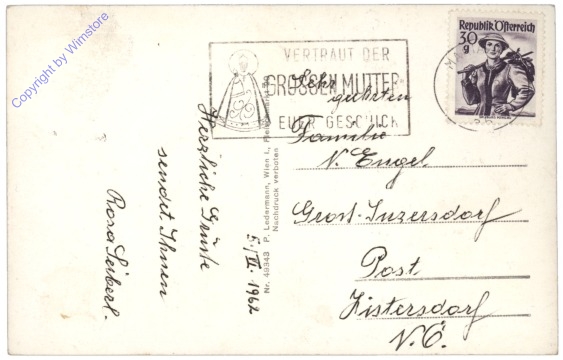 Copyright by Wimstore
VERTRAUT DER
GROSSEN MUTTER
EUER GESCHICK
Republik Österreich
30
g
Sehr
geehrten
Familie
N. Engel
Gross-Inzersdorf
Post
Zistersdorf
N.Ö.
Herzliche Grüße
sendet Ihnen
Rosa Seiberl.
5./VI. 1962
Nr. 49343 P. Ledermann, Wien I.,
Nachdruck verboten